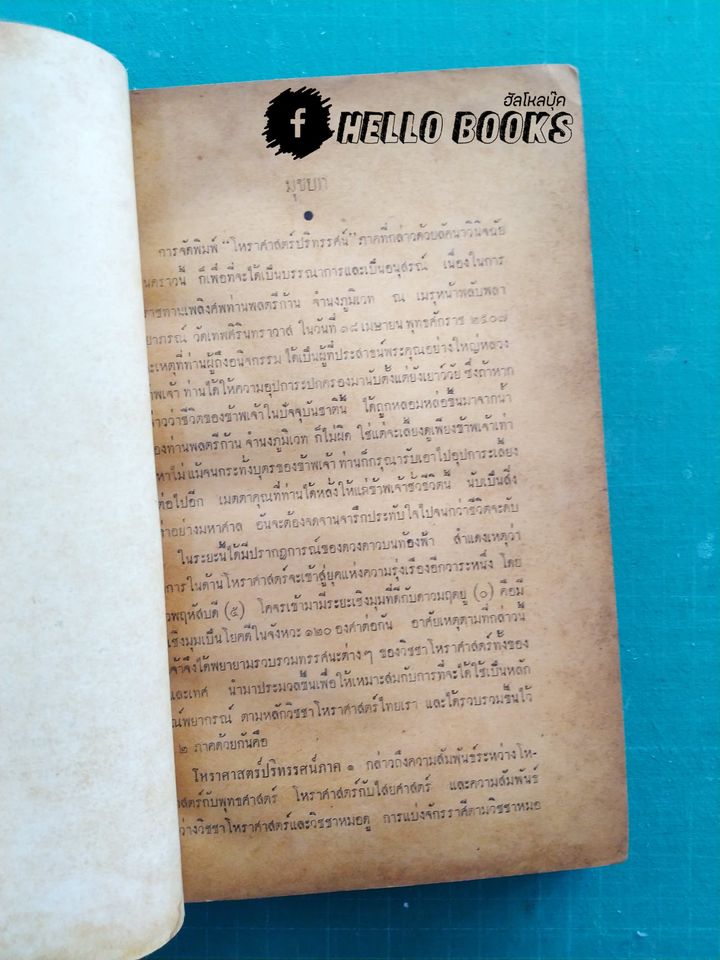 ฮัลโหลบุ๊ค
f HELLO BOOKS
มุขบท
การจัดพิมพ์ “โหราศาสตร์ปริทรรศน์” ภาคที่กล่าวด้วยลัคนาวินิจฉัย
นคราวนี้ ก็เพื่อที่จะได้เป็นบรรณาการและเป็นอนุสรณ์ เนื่องในการ
ราชทานเพลิงศพท่านพลตรีก้าน จำนงภูมิเวท ณ เมรุหน้าพลับพลา
ยาภรณ์ วัดเทพศิรินทราวาส ในวันที่ ๑๘ เมษายน พุทธศักราช ๒๕๐๗
ะเหตุที่ท่านผู้ถึงอนิจกรรม ได้เป็นผู้ที่ประสาธน์พระคุณอย่างใหญ่หลวง
าพเจ้า ท่านได้ให้ความอุปการะปกครองมานับตั้งแต่ยังเยาว์วัย ซึ่งถ้าหาก
่าวว่าชีวิตของข้าพเจ้าในปัจจุบันชาตินี้ ได้ถูกหลอมหล่อขึ้นมาจากน้ำ
องท่านพลตรีก้าน จำนงภูมิเวท ก็ไม่ผิด ใช่แต่จะเลี้ยงดูเพียงข้าพเจ้าเท่า
หาไม่ แม้จนกระทั่งบุตรของข้าพเจ้า ท่านก็กรุณารับเอาไปอุปการะเลี้ยง
ต่อไปอีก เมตตาคุณที่ท่านได้หลั่งให้แต่ข้าพเจ้าชั่วชีวิตนี้ นับเป็นสิ่ง
่าอย่างมหาศาล อันจะต้องจดจานจารึกประทับใจไปจนกว่าชีวิตจะดับ
ในระยะนี้ได้มีปรากฏการณ์ของดวงดาวบนท้องฟ้า สำแดงเหตุว่า
การในด้านโหราศาสตร์จะเข้าสู่ยุคแห่งความรุ่งเรืองอีกวาระหนึ่ง โดย
วพฤหัสบดี (๕) โคจรเข้ามามีระยะเชิงมุมที่ดีกับดาวมฤตยู (๐) คือมี
เชิงมุมเป็นโยคดีในจังหวะ ๑๒๐ องศาต่อกัน อาศัยเหตุตามที่กล่าวนี้
จ้าจึงได้พยายามรวบรวมทรรศนะต่างๆ ของวิชชาโหราศาสตร์ทั้งของ
และเทศ นำมาประมวลขึ้นเพื่อให้เหมาะสมกับการที่จะได้ใช้เป็นหลัก
ณ์พยากรณ์ ตามหลักวิชชาโหราศาสตร์ไทยเรา และได้รวบรวมขึ้นไว้
๒ ภาคด้วยกันคือ
โหราศาสตร์ปริทรรศน์ภาค ๑ กล่าวถึงความสัมพันธ์ระหว่างโห-
าสตร์กับพุทธศาสตร์ โหราศาสตร์กับไสยศาสตร์ และความสัมพันธ์
ว่างวิชชาโหราศาสตร์และวิชชาหมอดู การแบ่งจักรราศีตามวิชชาหมอ